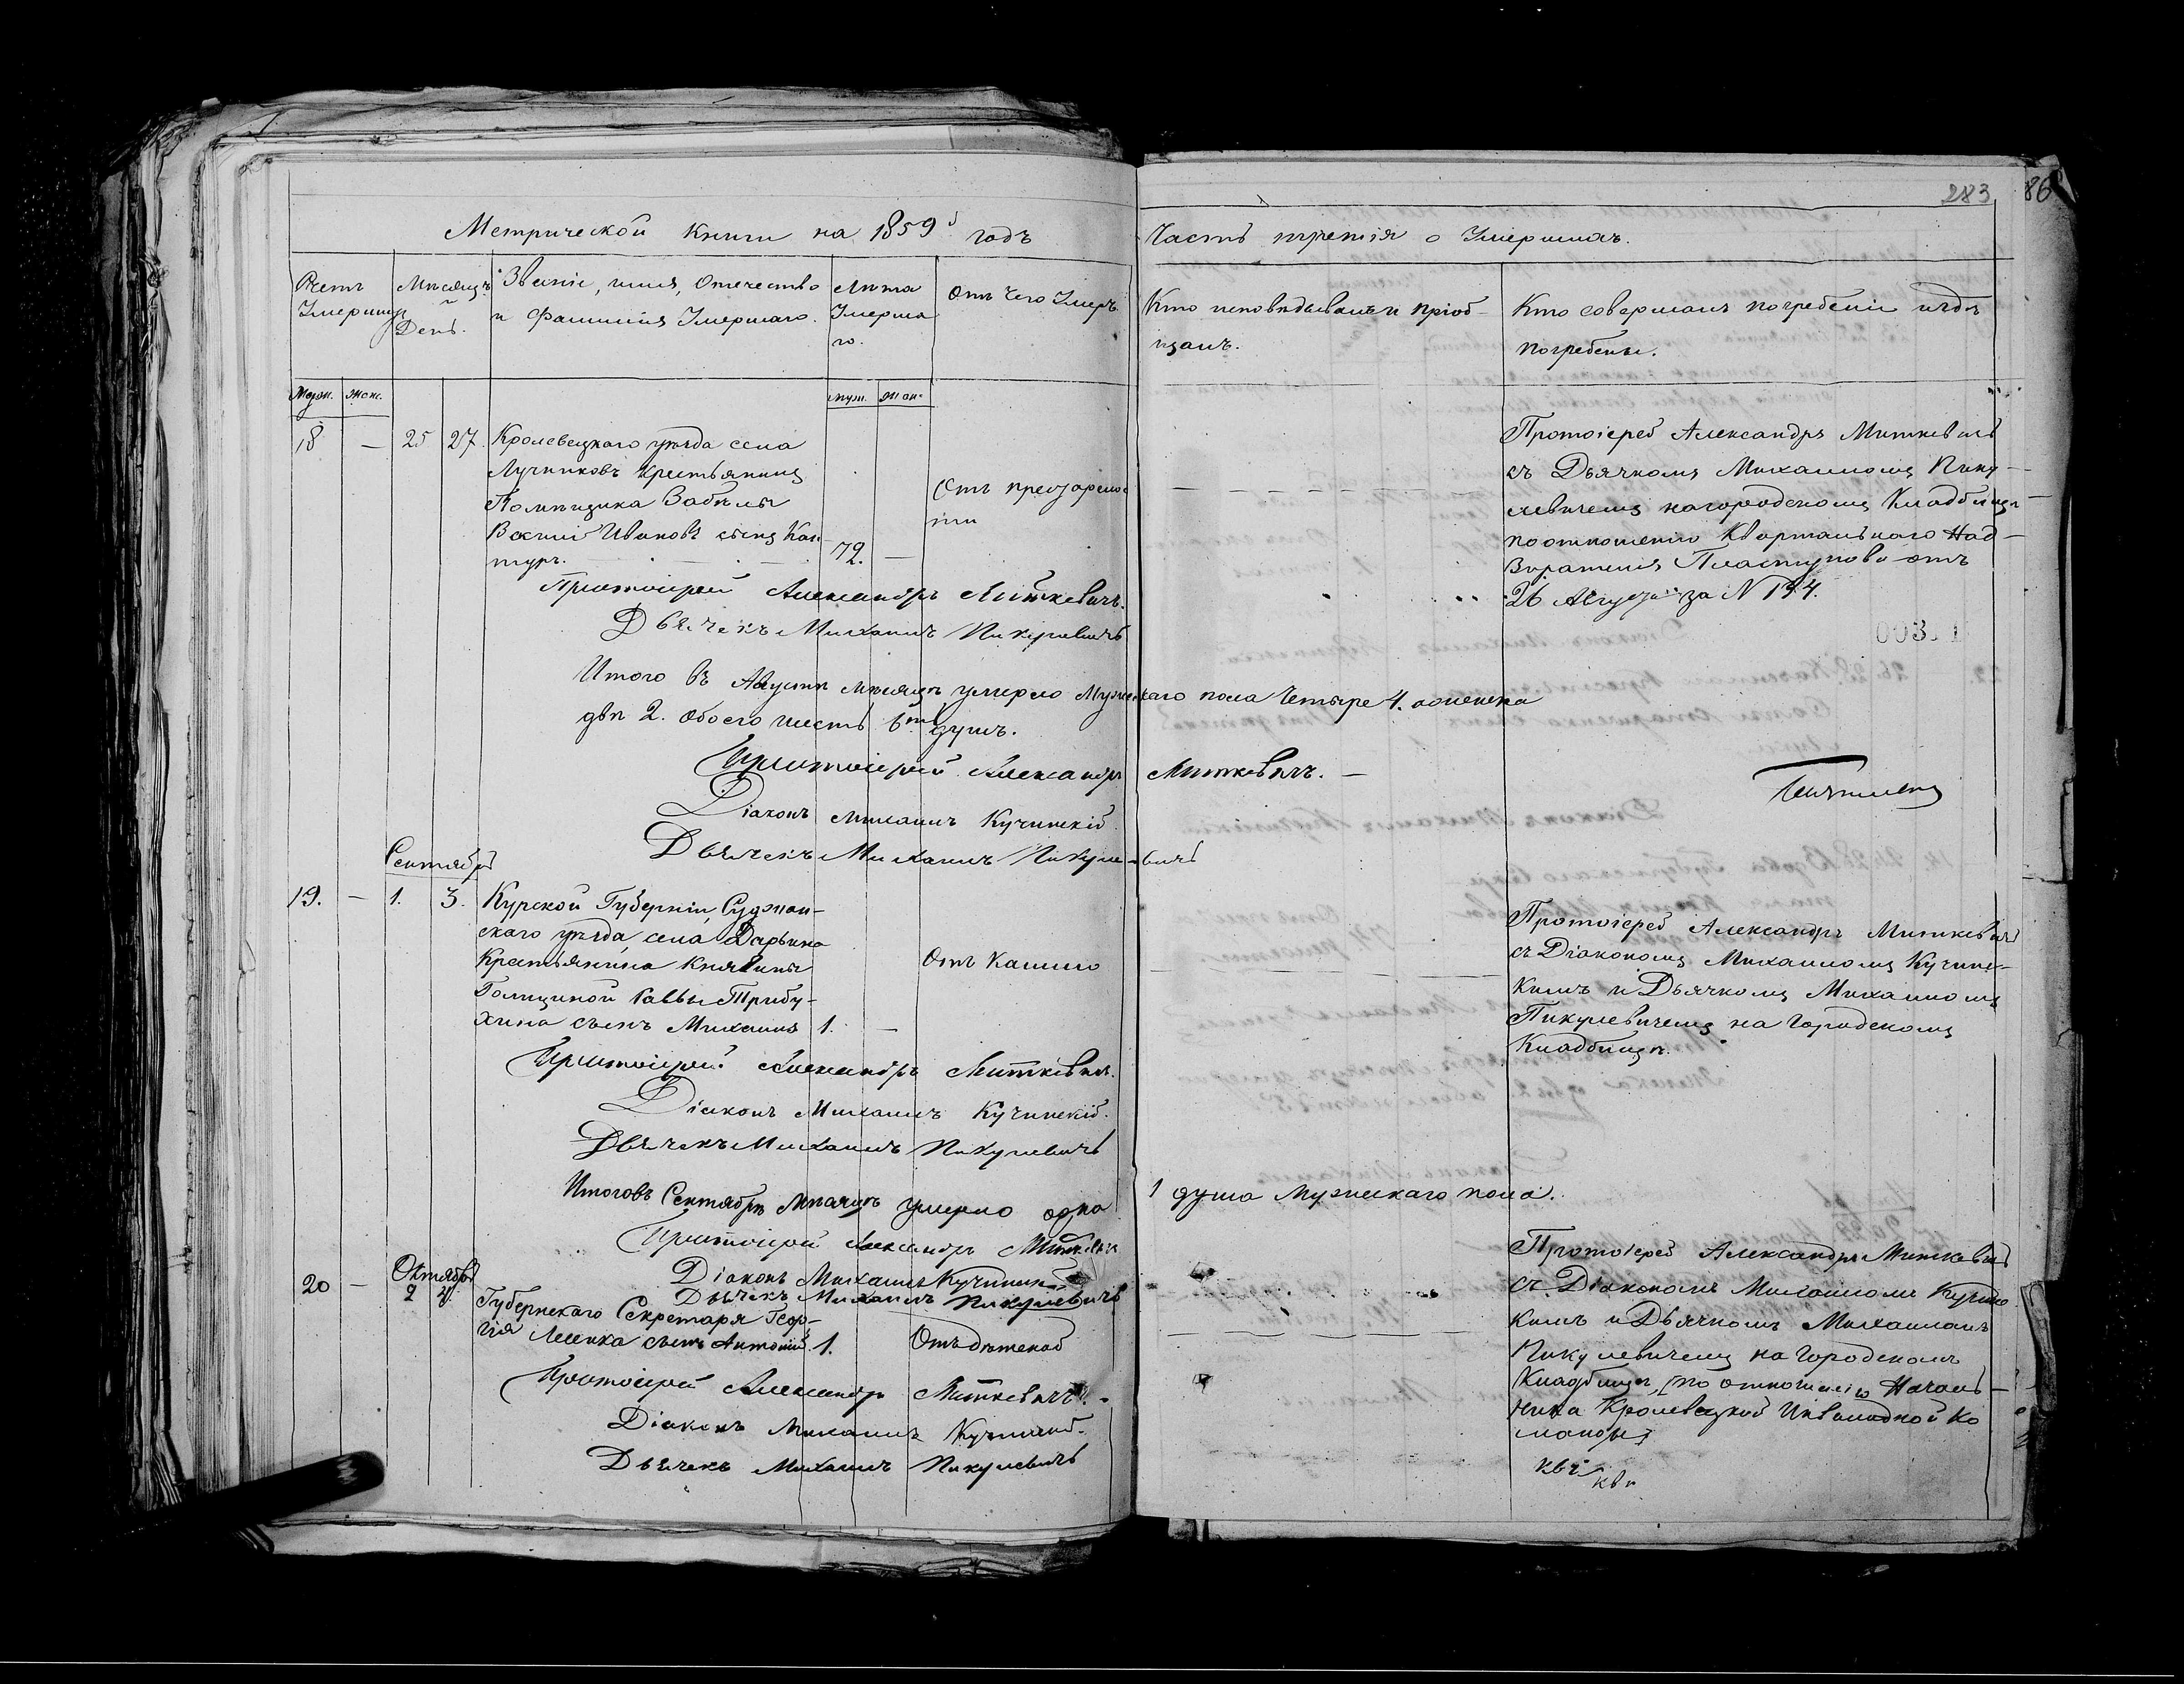 283 86
Метрической Книги на 1859й годъ
Часть третія о Умершихъ.
Счетъ Умершихъ
Мѣсяцъ и День.
Званіе, имя, Отечество и Фамилія Умершаго.
Лѣта Умершаго.
Отъ чего Умеръ
Кто исповѣдывалъ и пріобщалъ.
Кто совершалъ погребеніе и гдѣ погребены.
Муж. Жен.
муж. жен.
18 — 25 27. Кролевецкаго уѣзда села
Лучниковъ Крестьянинъ
Помѣщика Забѣлы
Василій Ивановъ сынъ Кан
туръ. 79. —
Отъ престарѣлос
ти
Протоіерей Александръ Миткевичъ
съ Дьячкомъ Михаиломъ Пику-
левичемъ на городскомъ Кладбищѣ
по отношенію Квартальнаго Над-
зирателя Пластунова отъ
26 Августа за N 134.
Протоіерей Александръ Миткевичъ.
Дьячекъ Михаилъ Пикулевичъ
003.1
Итого въ Августѣ мѣсяцѣ умерло Мужескаго пола Четыре 4. а женска
двѣ 2. обоего шесть 6ть душъ.
Протоіерей Александръ Миткевичъ. —
Діаконъ Михаилъ Кучинскій
Дьячекъ Михаилъ Пикулевичъ
Сентябрь
19. — 1. 3. Курской Губерніи, Суджан-
скаго уѣзда, села Дарьина
Крестьянина Княгини
Голициной Саввы Трибу-
хина сынъ Михаилъ 1. —
Отъ Кашлю
Протоіерей Александръ Миткевичъ
съ Діакономъ Михаиломъ Кучинс-
кимъ и Дьячкомъ Михаиломъ
Пикулевичемъ на Городскомъ
Кладбищѣ.
Протоіерей Александръ Миткевичъ.
Діаконъ Михаилъ Кучинскій.
Дьячекъ Михаилъ Пикулевичъ
Итого въ Сентябрѣ Мѣсяцѣ умерло одна 1 душа Мужескаго пола.
Протоіерей Александръ Миткевичъ
Діаконъ Михаилъ Кучинск
Дьячекъ Михаилъ Пикулевичъ
Октябрь
20 — 2 4. Губернскаго Секретаря Геор-
гія сынъ Антоній. 1.
Отъ дѣтской
Протоіерей Александръ Миткевичъ
съ Діакономъ Михаиломъ Кучинс
кимъ и Дьячкомъ Михаиломъ
Пикулевичемъ на Городскомъ
Кладбищѣ, по отношенію Началь-
ника Кролевецкой Инвалидной Ко
манды
Протоіерей Александръ Миткевичъ.
Діаконъ Михаилъ Кучинскій.
Дьячекъ Михаилъ Пикулевичъ